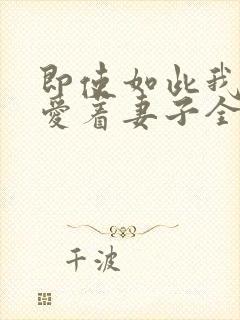 即使如此我
爱着妻子全
千波